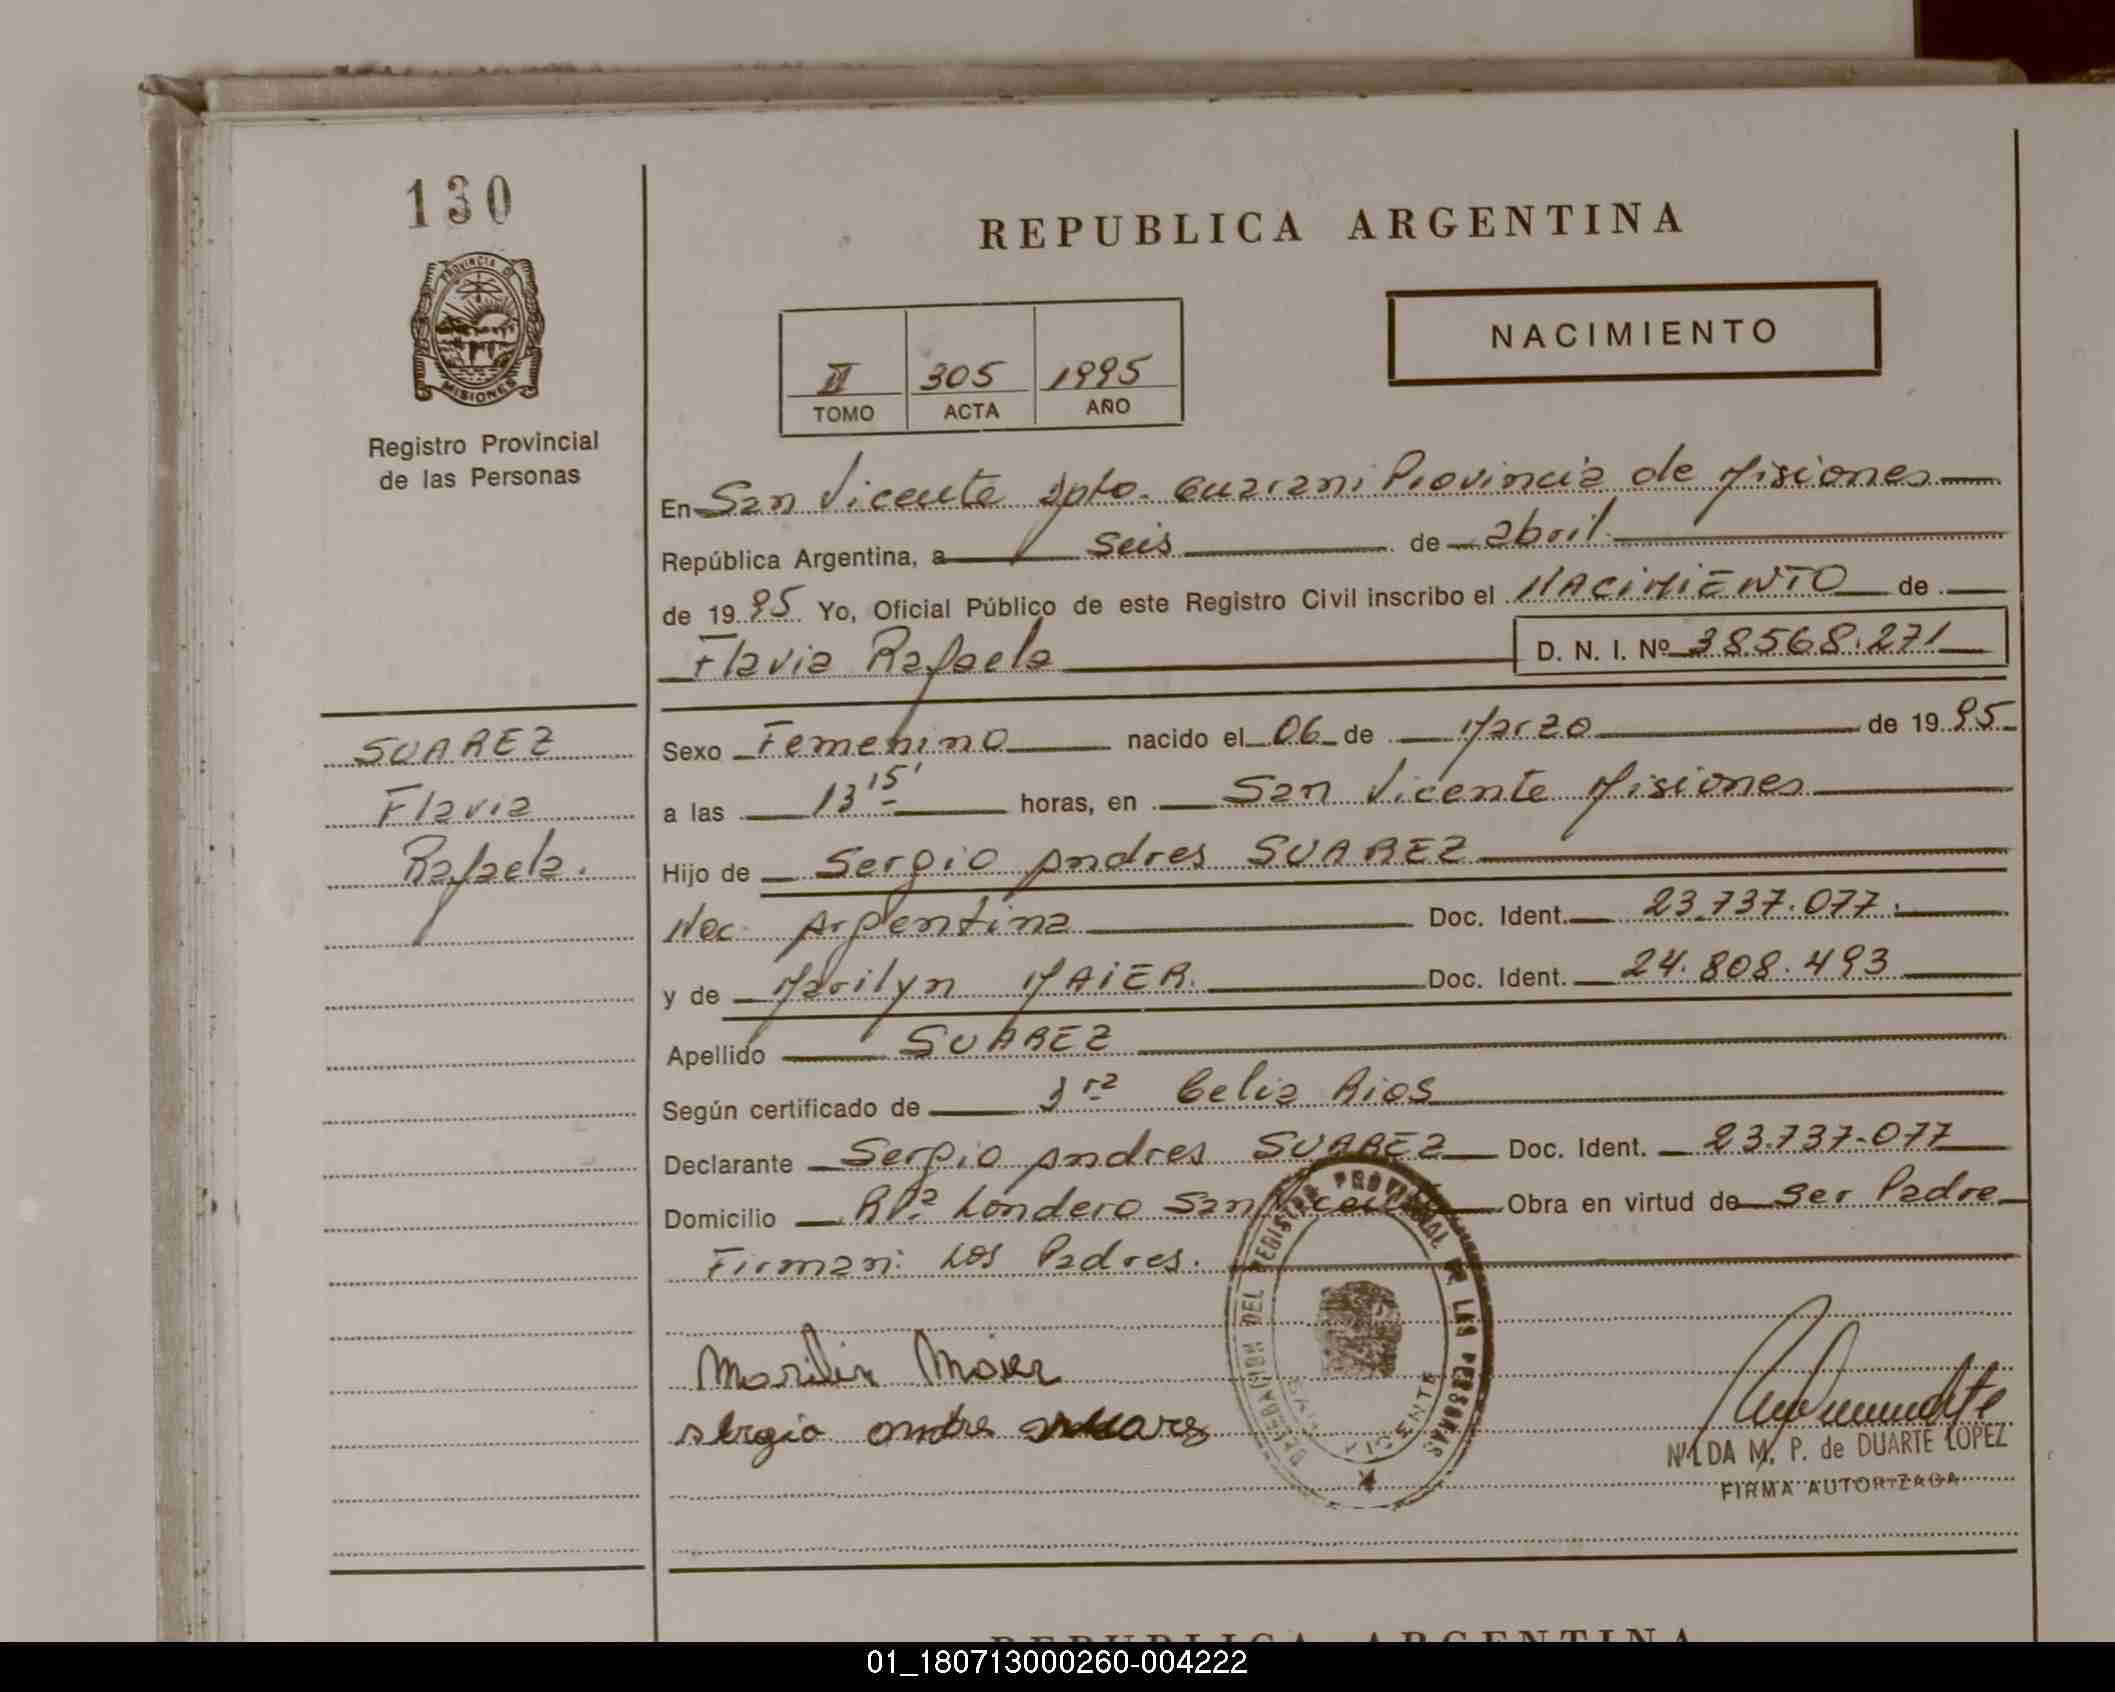 130
PROVINCIA DE
MISIONES
Registro Provincial
de las Personas
REPUBLICA ARGENTINA
NACIMIENTO
II 305 1995
TOMO ACTA AÑO
En San Vicente Dpto. Guarani Provincia de Misiones
República Argentina, a seis de abril
de 1995 Yo, Oficial Público de este Registro Civil inscribo el NACIMIENTO de
Flavia Rafaela D. N. I. Nº 38568.271
SUAREZ
Flavia
Rafaela.
Sexo Femenino nacido el 06 de Marzo de 1995
a las 13 15' horas, en San Vicente Misiones
Hijo de Sergio Andres SUAREZ
Nac. Argentina Doc. Ident. 23.737.077.
y de Marilyn MAIER. Doc. Ident. 24.808.493
Apellido SUAREZ
Según certificado de Dra Celia Rios
Declarante Sergio Andres SUAREZ Doc. Ident. 23.737.077
Domicilio Londero San Vicente Obra en virtud de Ser Padre
Firman: Los Padres.
Marilin Maier
sergio andres suares
DELEGACION DEL REGISTRO PROVINCIAL DE LAS PERSONAS
SAN VICENTE
NILDA M. P. de DUARTE LOPEZ
FIRMA AUTORIZADA
REPUBLICA ARGENTINA
01_180713000260-004222